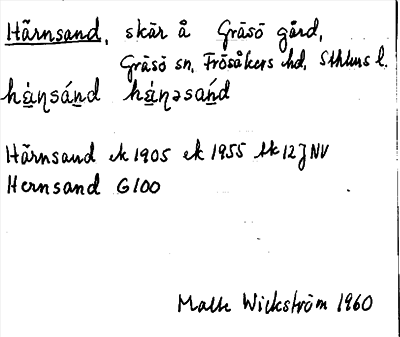 Härnsand, skär å Gräsö gård,
Gräsö sn, Frösåkers hd, Sthlms l.
Härnsand ek 1905 ek 1955 tk 12J NV
Hernsand G100
Wickström 1960